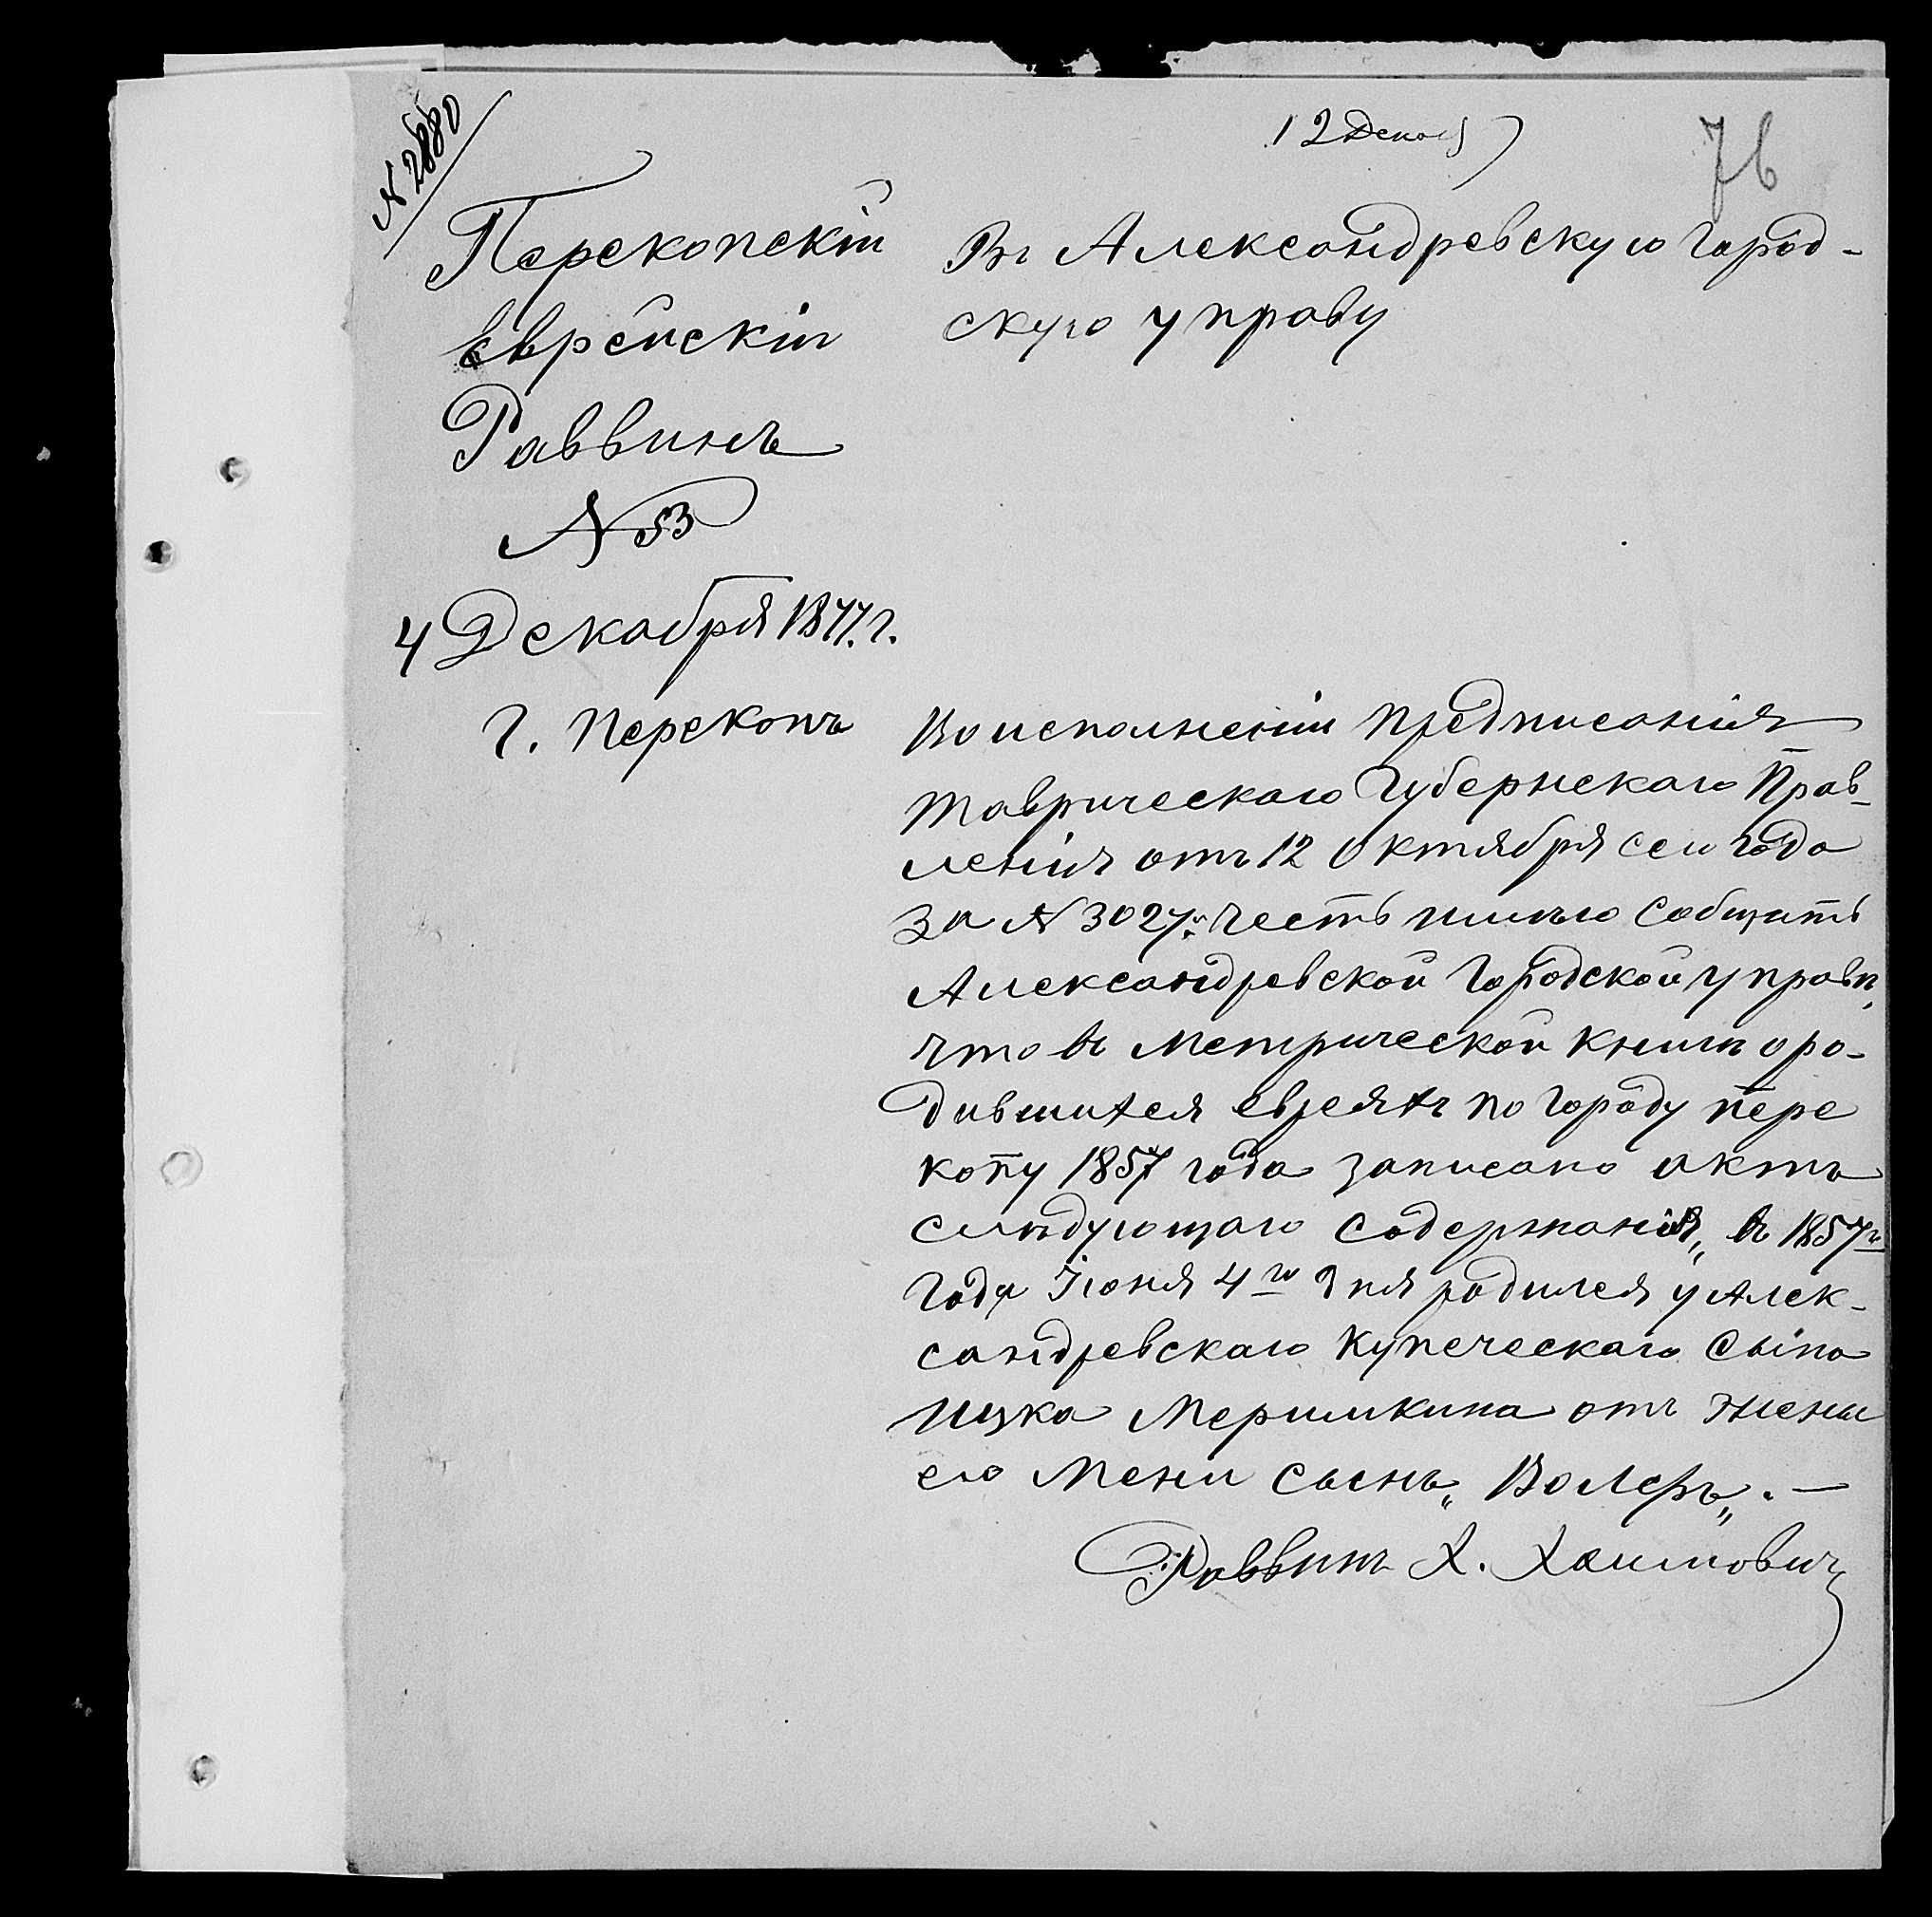 N 2880
12 Декаб
76
Перекопскій
Еврейскій
Раввинъ
N 53
4 Декабря 1877 г.
г. Перекопъ
Въ Александревскую город-
скую управу
Во исполненіи предписанія
Таврическаго Губернскаго Прав-
ленія отъ 12 Октября сего года
за N 3027. честь имѣю собщить
Александревской городской управѣ,
что въ Метрической книгѣ о ро-
дившихся евреяхъ по городу пере
копу 1857 года записано актъ
слѣдующаго содержанія „въ 1857го
года Іюня 4го дня родился у Алек-
сандревскаго купеческаго сына
Ицка Меримкина отъ жены
его Мени сынъ „Волеръ„. —
Раввинъ Х. Хаимовичъ